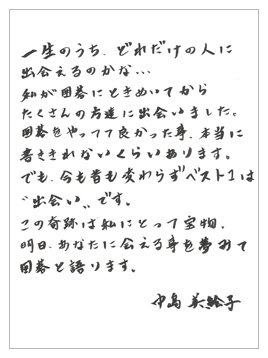 一生のうち、どれだけの人に
出会えるのかな…
私が囲碁にときめいてから
たくさんの方達に出会いました。
囲碁をやってて良かった事、本当に
書ききれないくらいあります。
でも、今も昔も変わらずベスト1は
“出会い”です。
この奇跡は私にとって宝物。
明日、あなたに会える事を夢みて
囲碁と語ります。
中島 美絵子